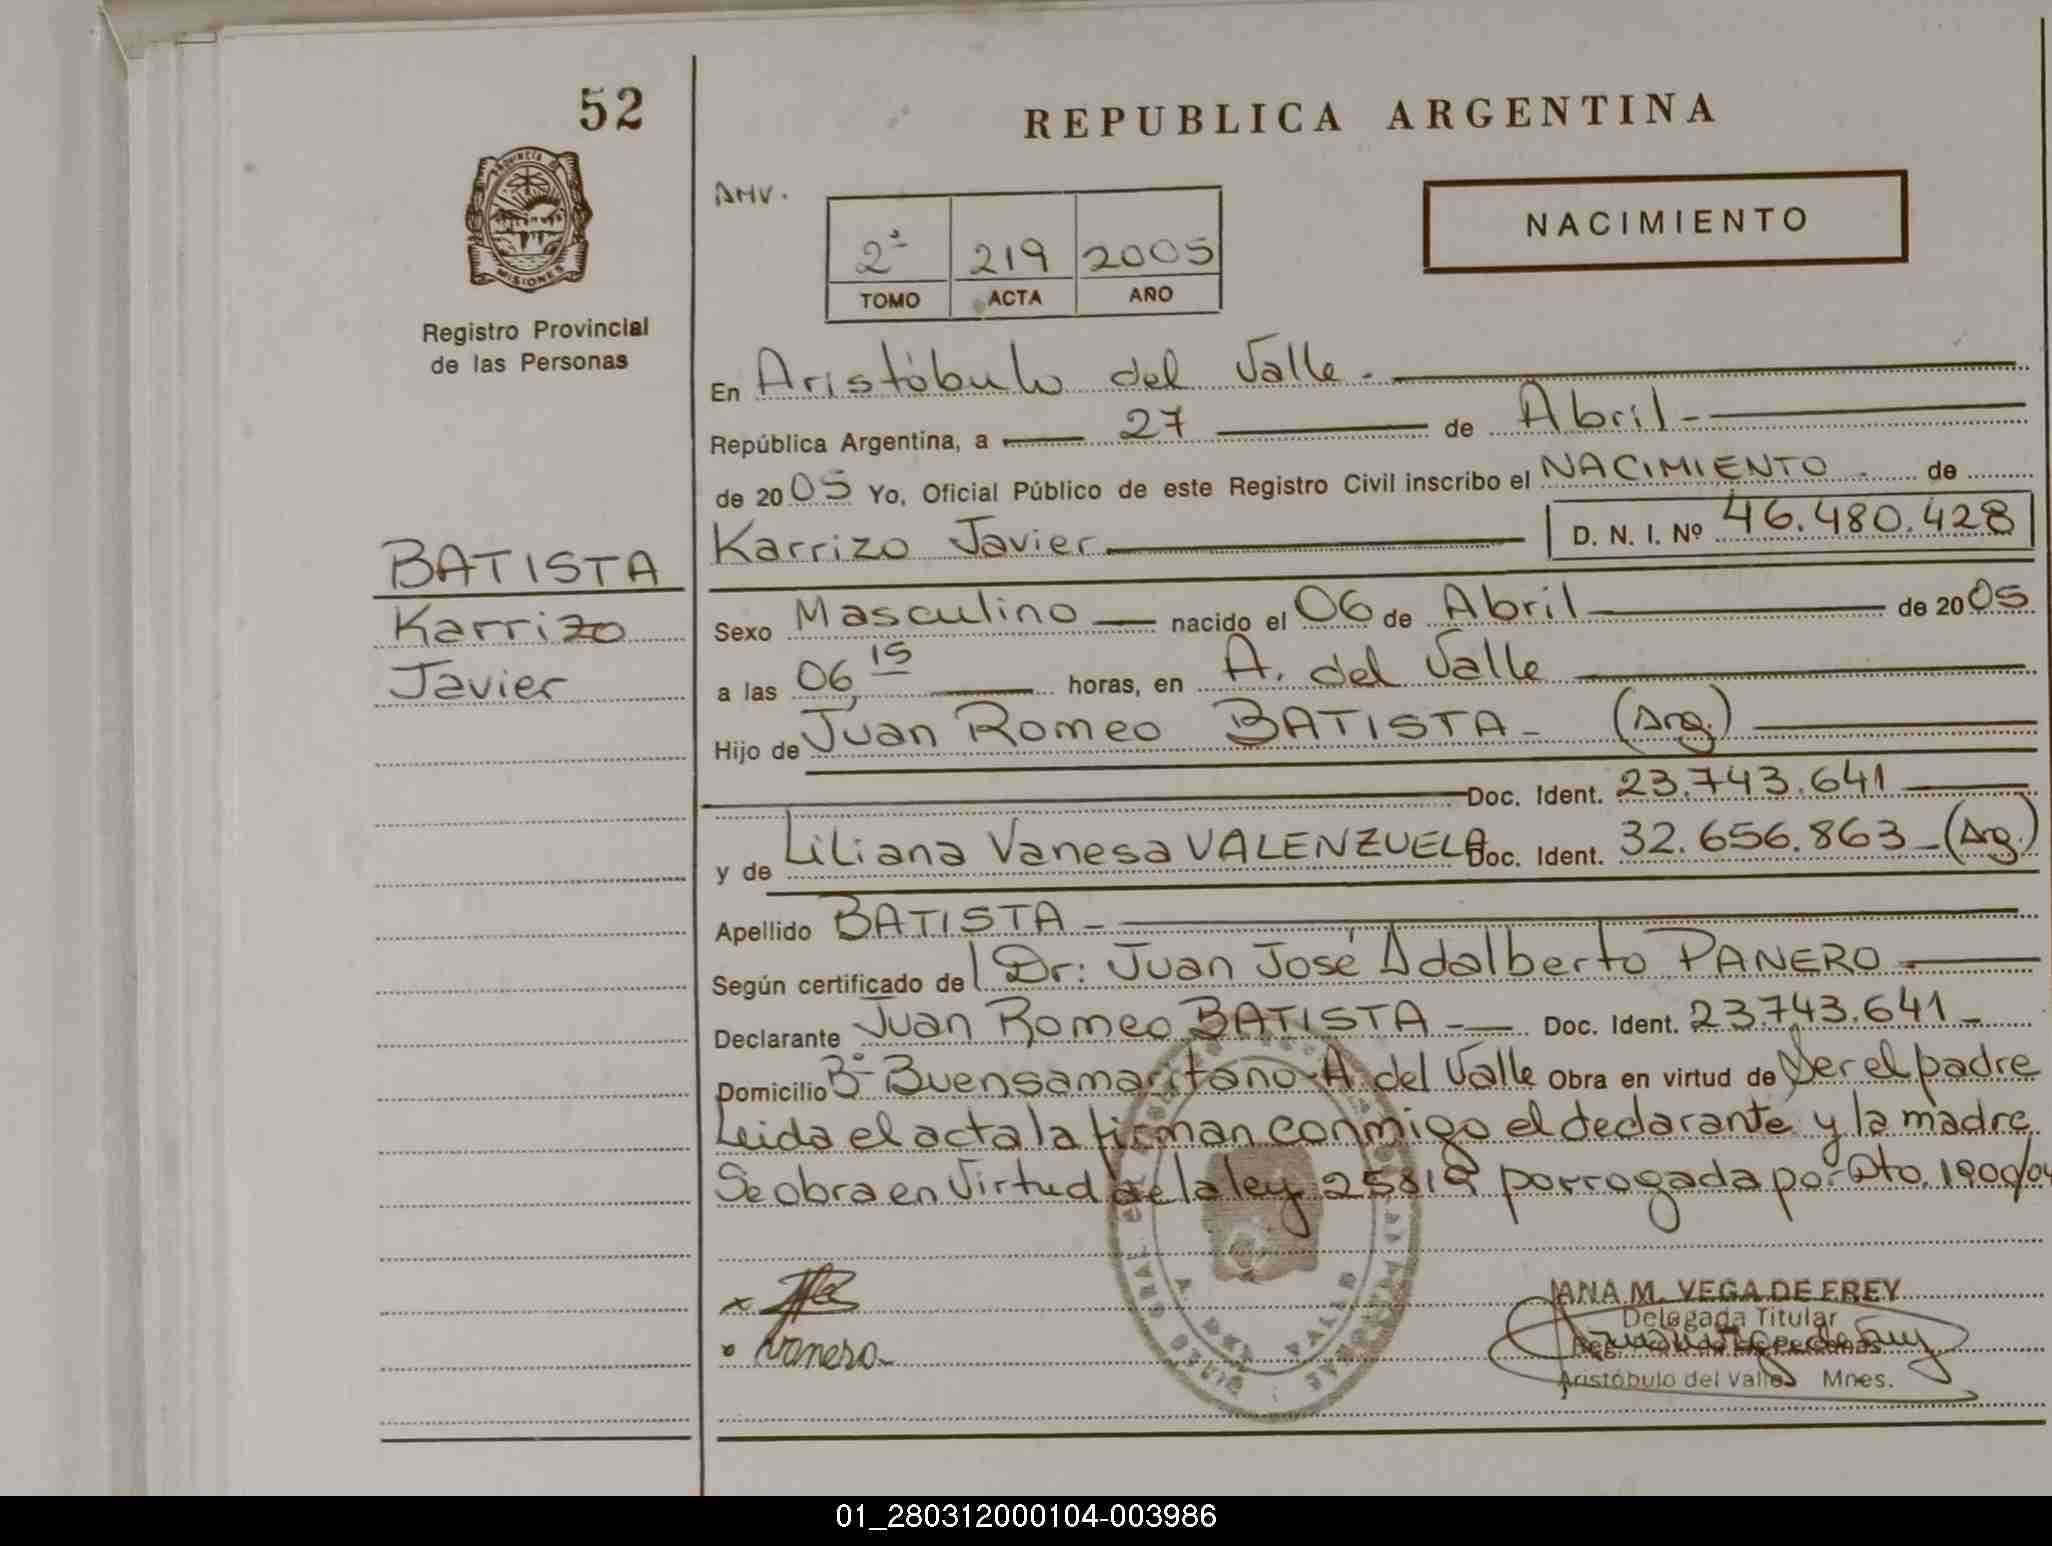 52
REPUBLICA ARGENTINA
PROVINCIA DE
MISIONES
Registro Provincial
de las Personas
AMV.
2º 219 2005
TOMO ACTA AÑO
NACIMIENTO
BATISTA
Karrizo
Javier
En Aristóbulo del Valle.
República Argentina, a 27 de Abril
de 2005 Yo, Oficial Público de este Registro Civil inscribo el NACIMIENTO de
Karrizo Javier D. N. I. Nº 46.480.428
Sexo Masculino nacido el 06 de Abril de 2005
a las 06,15 horas, en A. del Valle
Hijo de Juan Romeo BATISTA (Arg.)
Doc. Ident. 23.743.641
y de Liliana Vanesa VALENZUELA Doc. Ident. 32.656.863 (Arg.)
Apellido BATISTA
Según certificado de Dr: Juan José Adalberto PANERO
Declarante Juan Romeo BATISTA Doc. Ident. 23.743.641
Domicilio Bº Buensamaritano-A. del Valle Obra en virtud de Ser el padre
Leida el acta la firman conmigo el declarante y la madre
Se obra en Virtud de la ley 25819 porrogada por Dto. 1900/04
ANA M. VEGA DE FREY
Delegada Titular
Aristóbulo del Valle Mnes.
A. DEL VALLE
01_280312000104-003986